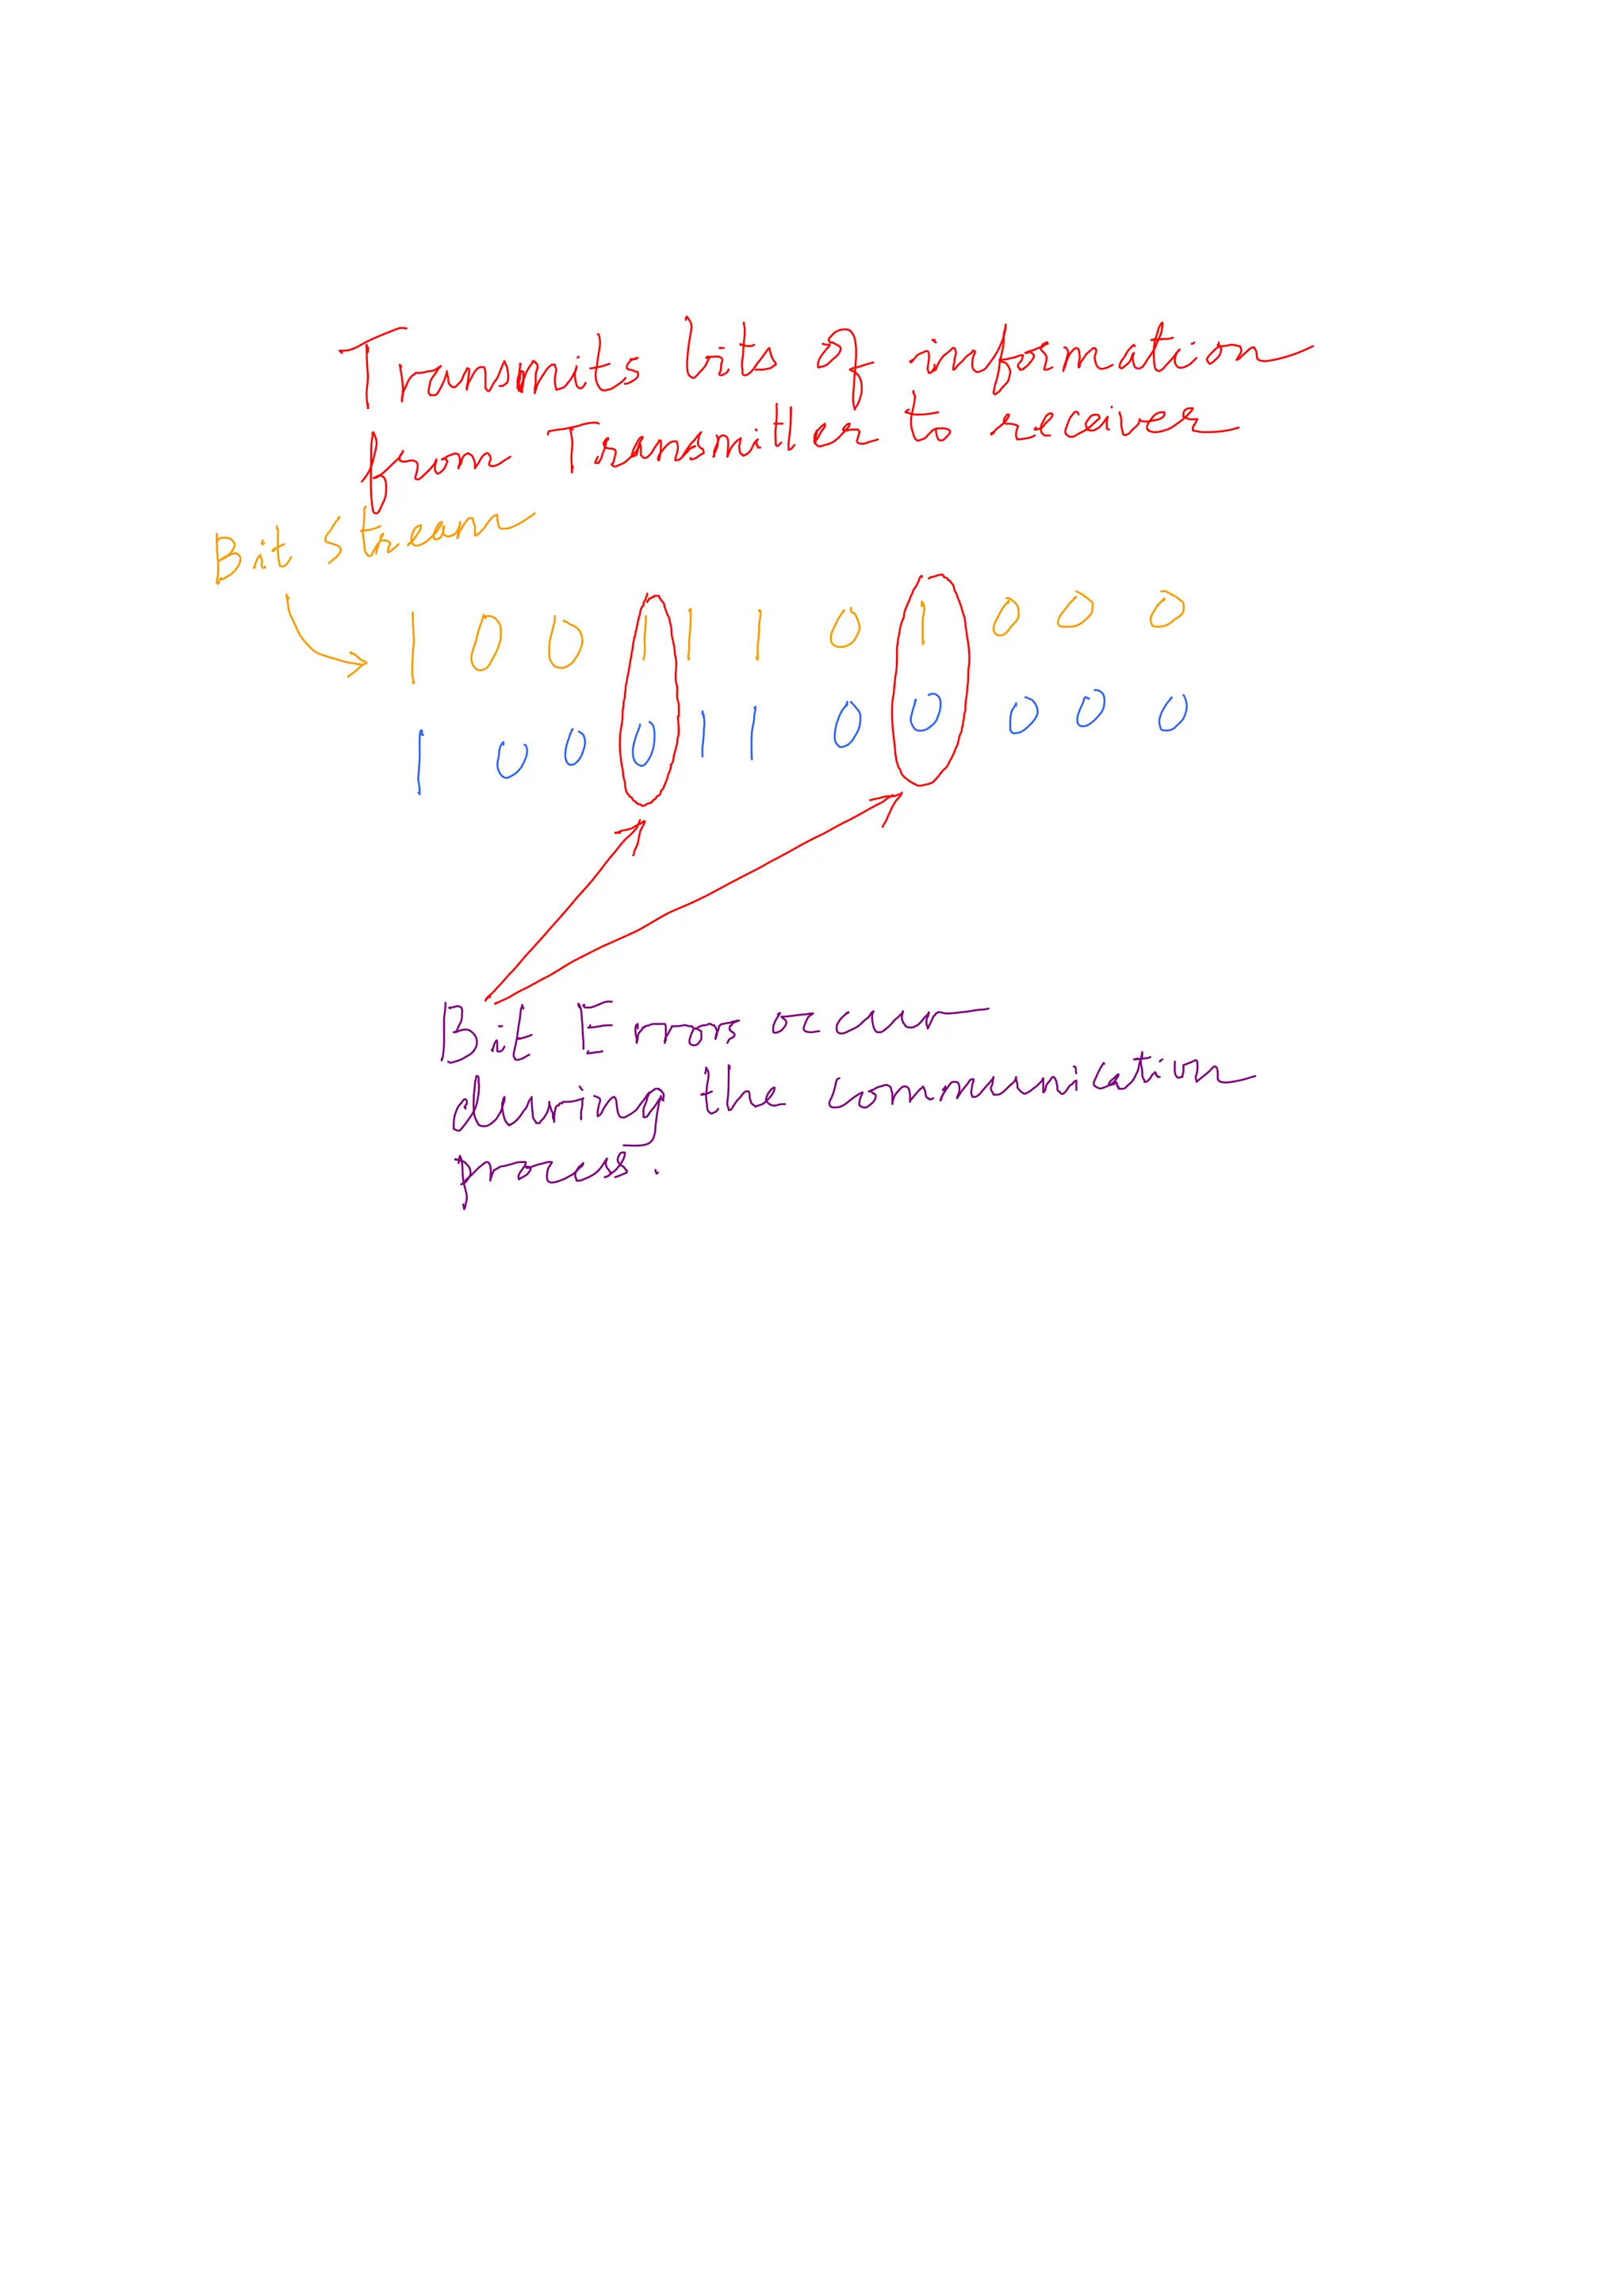 Transmits bits of information
from Transmitter to receiver
Bit Stream
1 0 0 1 1 1 0 1 0 0 0
1 0 0 0 1 1 0 0 0 0 0
Bit Errors occur
during the communication
process.